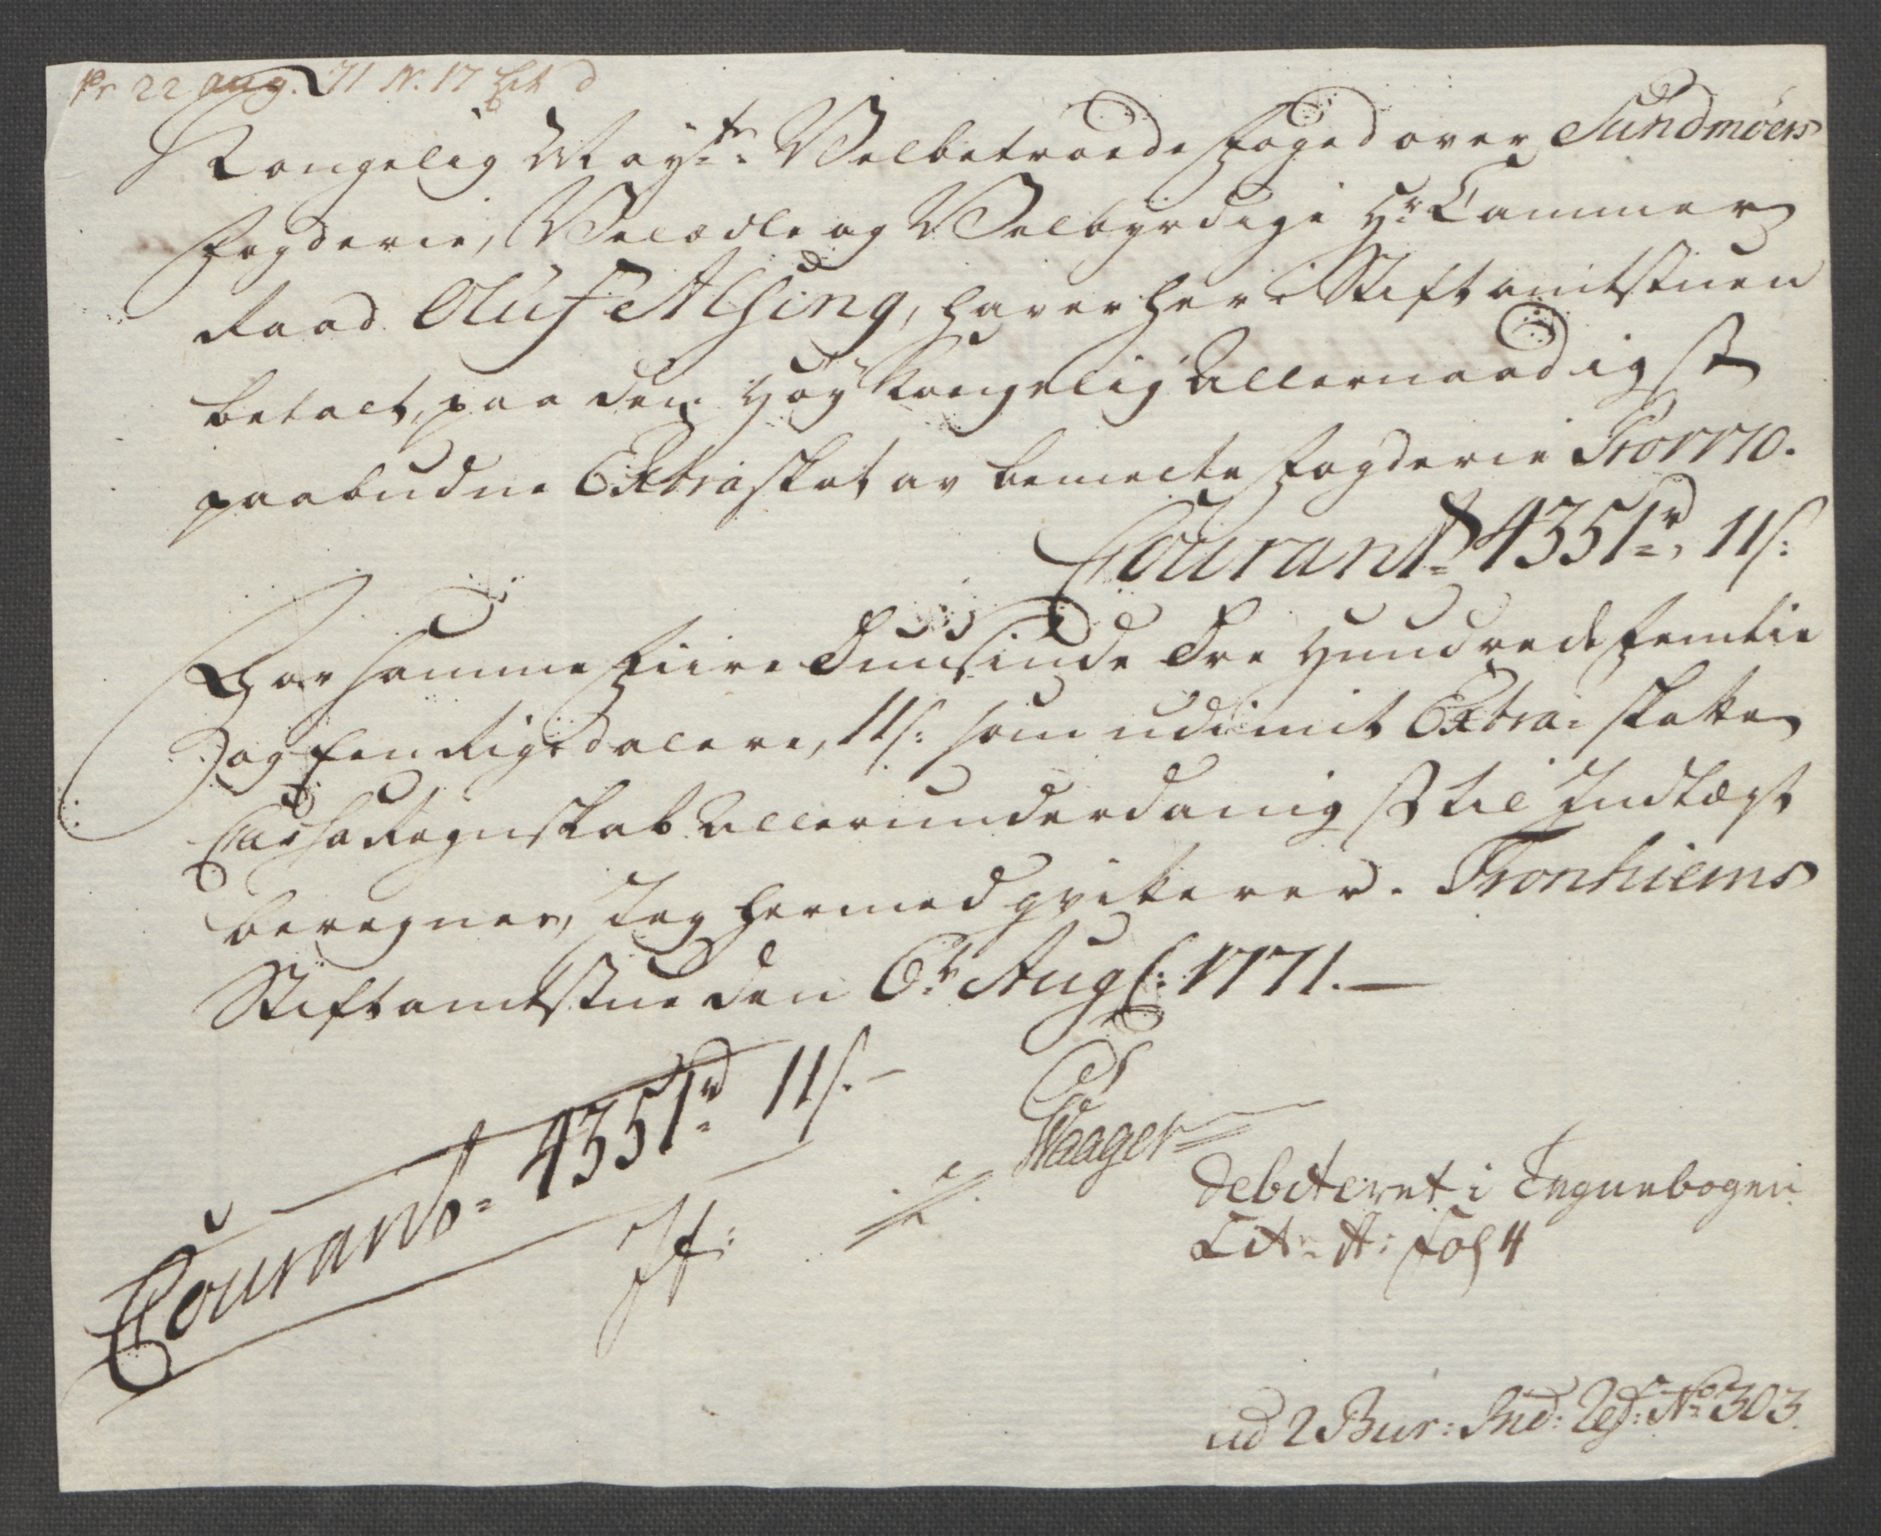 Pr 22 aug. 71 N. 17 Lit d
Kongelig Mayts Velbetroede Foged over Sundmöers
Fogderie, Velædle og Velbyrdige Hr Cammer
Raad Oluf Alsing, haver her i Stiftamtstuen
betalt, paa den Høy Kongelig Allernaadigst
paabudne Extra skat av bemelte Fogderie Pro 1770.
Courant 4351rd, 11s:
Hvor samme Fiire Tuusinde Tre Hundrede Femtie
og Een Rigsdalere, 11s: som udi mit Extra-skatte
Cassa Regnskab Allerunderdanigst til Indtægt
beregner, Jeg hermed qvitterer. Tronhiems
Stiftamtstue den 6te Augs: 1771.
Courant 4351rd 11s.
Waager
debiteret i Tegnebogen
Lit: A: Fol 4
ud 2 Bur: Ind: No 303.